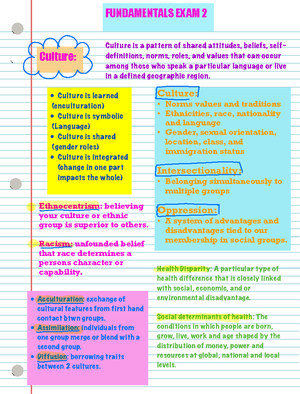 FUNDAMENTALS EXAM 2
Culture:
Culture is a pattern of shared attitudes, beliefs, self-
definitions, norms, roles, and values that can occur
among those who speak a particular language or live
in a defined geographic region.
• Culture is learned
(enculturation)
• Culture is symbolic
(Language)
• Culture is shared
(gender roles)
• Culture is integrated
(change in one part
impacts the whole)
Culture:
• Norms values and traditions
• Ethnicities, race, nationality
and language
• Gender, sexual orientation,
location, class, and
immigration status
Intersectionality:
• Belonging simultaneously to
multiple groups
Oppression:
• A system of advantages and
disadvantages tied to our
membership in social groups.
Ethnocentrism: believing
your culture or ethnic
group is superior to others.
Racism: unfounded belief
that race determines a
persons character or
capability.
• Acculturation: exchange of
cultural features from first hand
contact btwn groups.
• Assimilation: individuals from
one group merge or blend with a
second group.
• Diffusion: borrowing traits
between 2 cultures.
Health Disparity: A particular type of
health difference that is closely linked
with social, economic, and or
environmental disadvantage.
Social determinants of health: The
conditions in which people are born,
grow, live, work and age shaped by the
distribution of money, power and
resources at global, national and local
levels.